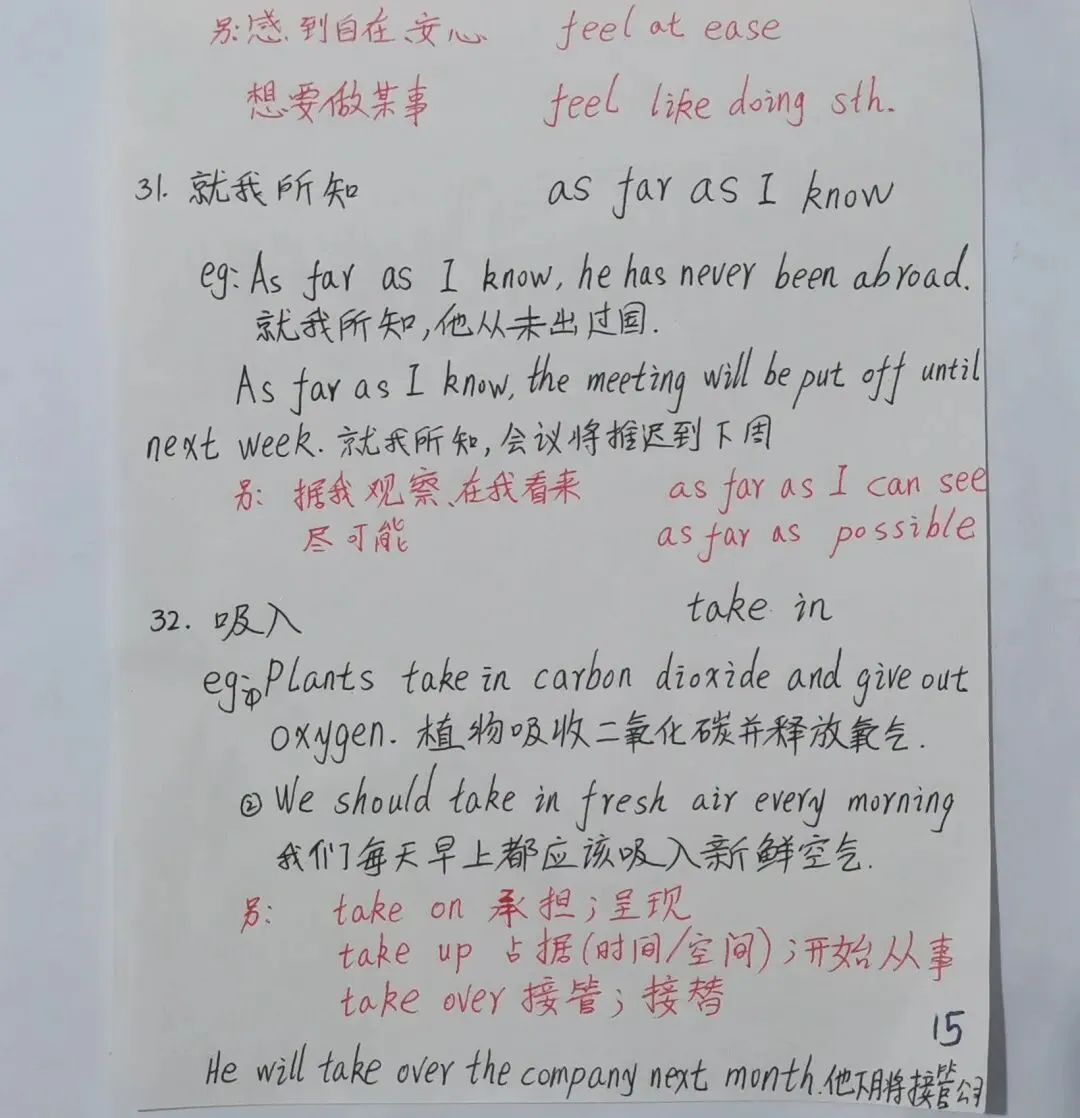 另:感到自在、安心 feel at ease
想要做某事 feel like doing sth.
31. 就我所知 as far as I know
eg: As far as I know, he has never been abroad.
就我所知,他从未出过国.
As far as I know, the meeting will be put off until
next week. 就我所知,会议将推迟到下周
另: 据我观察、在我看来 as far as I can see
尽可能 as far as possible
32. 吸入 take in
eg:① Plants take in carbon dioxide and give out
oxygen. 植物吸收二氧化碳并释放氧气.
② We should take in fresh air every morning
我们每天早上都应该吸入新鲜空气.
另: take on 承担;呈现
take up 占据(时间/空间);开始从事
take over 接管;接替
15
He will take over the company next month.他下月将接管公司